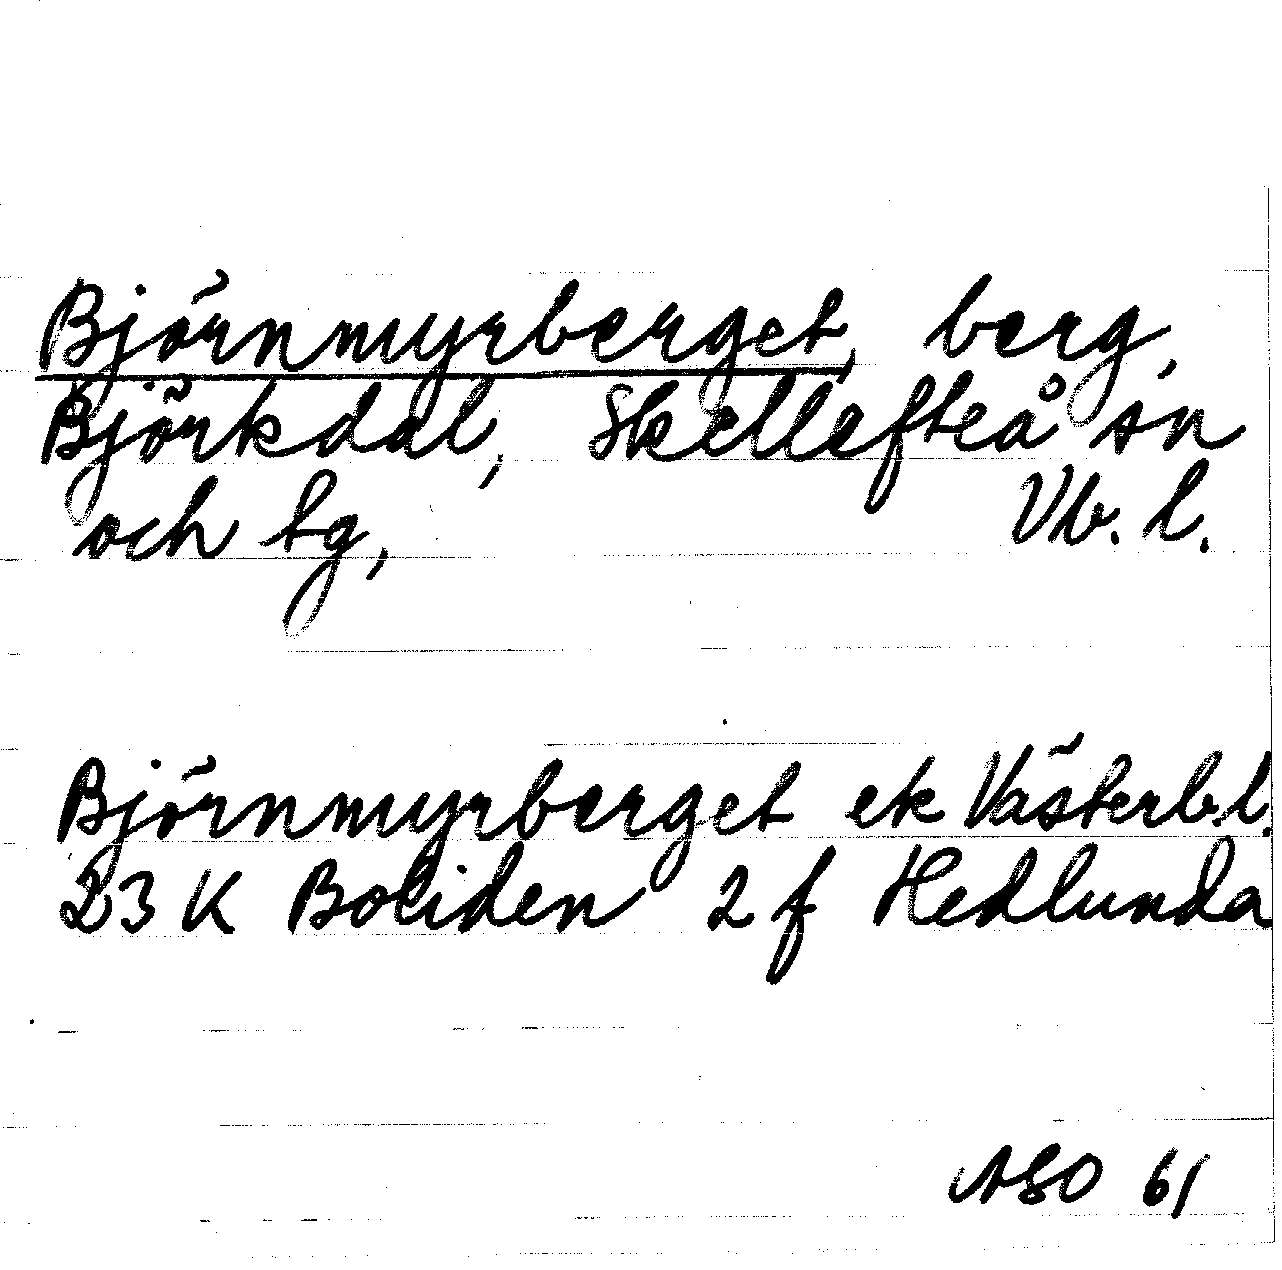 Björnmyrberget, berg,
Björkdal, Skellefteå sn
och tg, Vb. l.
Björnmyrberget ek Västerb.l.
23 K Boliden 2 f Hedlunda
ASO 61